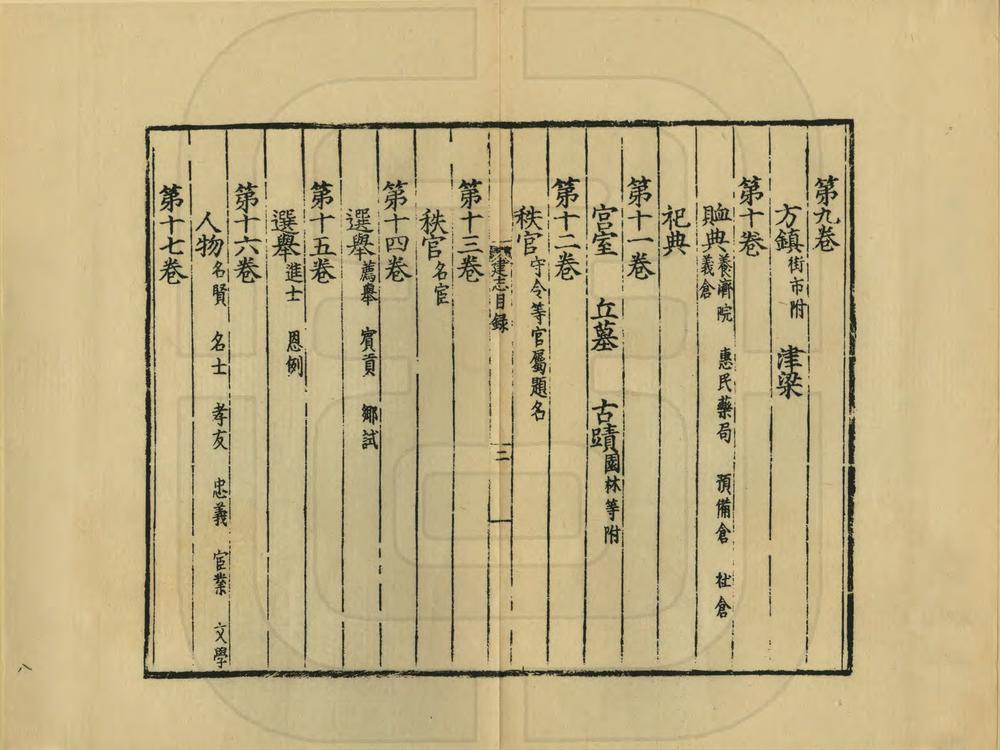 第九卷
方鎮街市附 津梁
第十卷
賉典養濟院 惠民藥局 預備倉 社倉
義倉
祀典
第十一卷
宫室 丘墓 古蹟園林等附
第十二卷
秩官守令等官屬題名
建志目録
二
第十三卷
秩官名宦
第十四卷
選舉薦舉 賓貢 鄉試
第十五卷
選舉進士 恩例
第十六卷
人物名賢 名士 孝友 忠義 宦業 文學
第十七卷
八